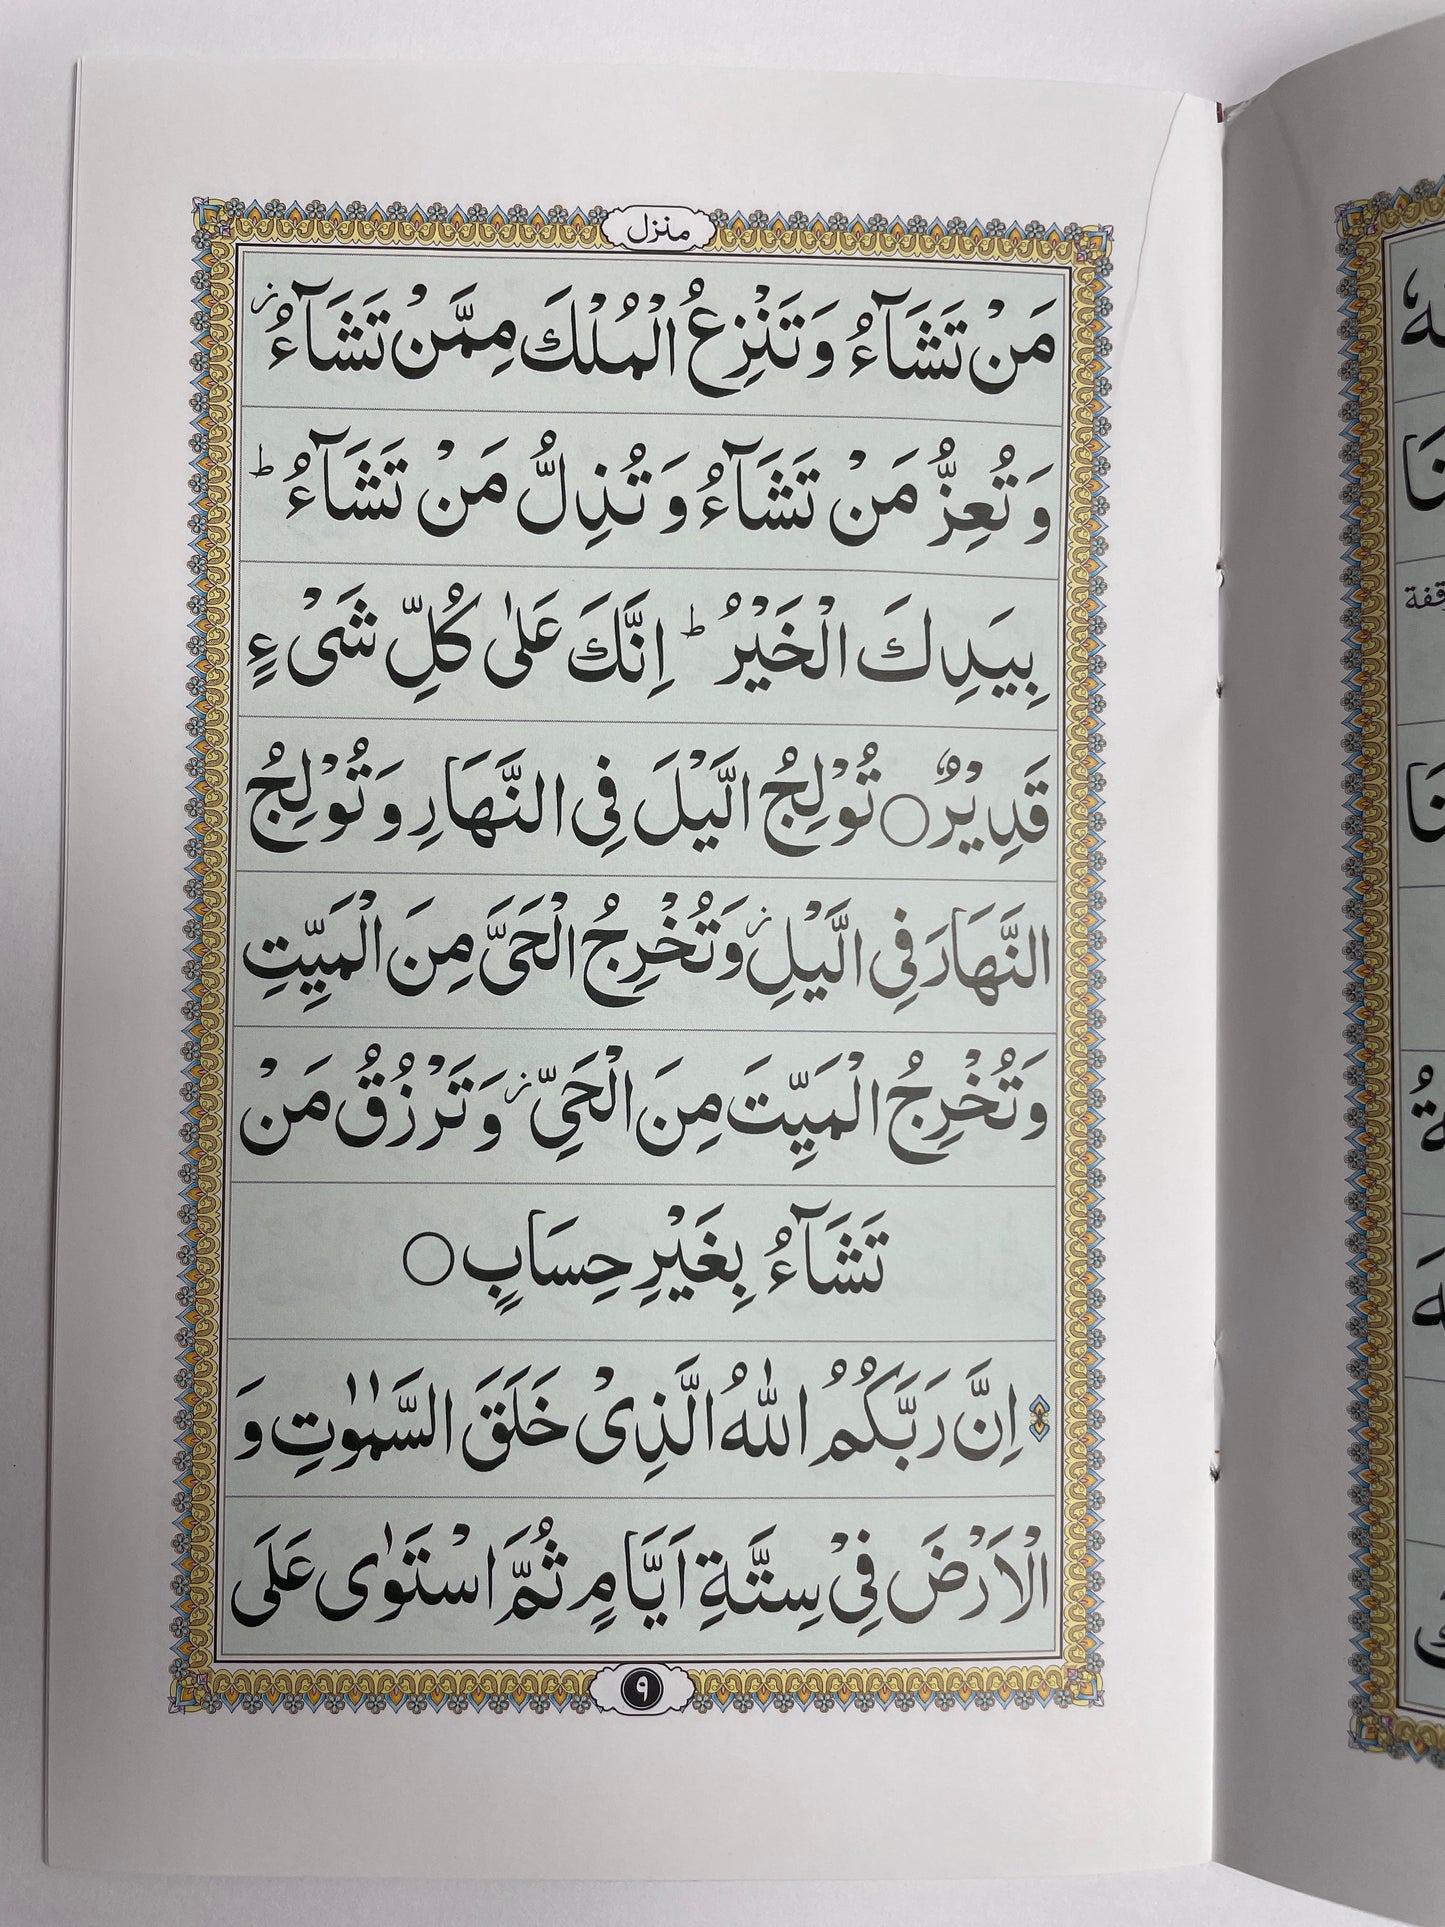 منزل
مَنْ تَشَآءُ وَ تَنْزِعُ الْمُلْكَ مِمَّنْ تَشَآءُ ز
وَ تُعِزُّ مَنْ تَشَآءُ وَ تُذِلُّ مَنْ تَشَآءُ ؕ
بِيَدِكَ الْخَيْرُ ؕ اِنَّكَ عَلٰى كُلِّ شَىْءٍ
قَدِيْرٌ ○ تُوْلِجُ الَّيْلَ فِى النَّهَارِ وَ تُوْلِجُ
النَّهَارَ فِى الَّيْلِ ز وَ تُخْرِجُ الْحَىَّ مِنَ الْمَيِّتِ
وَ تُخْرِجُ الْمَيِّتَ مِنَ الْحَىِّ ز وَ تَرْزُقُ مَنْ
تَشَآءُ بِغَيْرِ حِسَابٍ ○
اِنَّ رَبَّكُمُ اللّٰهُ الَّذِىْ خَلَقَ السَّمٰوٰتِ وَ
الْاَرْضَ فِىْ سِتَّةِ اَيَّامٍ ثُمَّ اسْتَوٰى عَلَى
٩